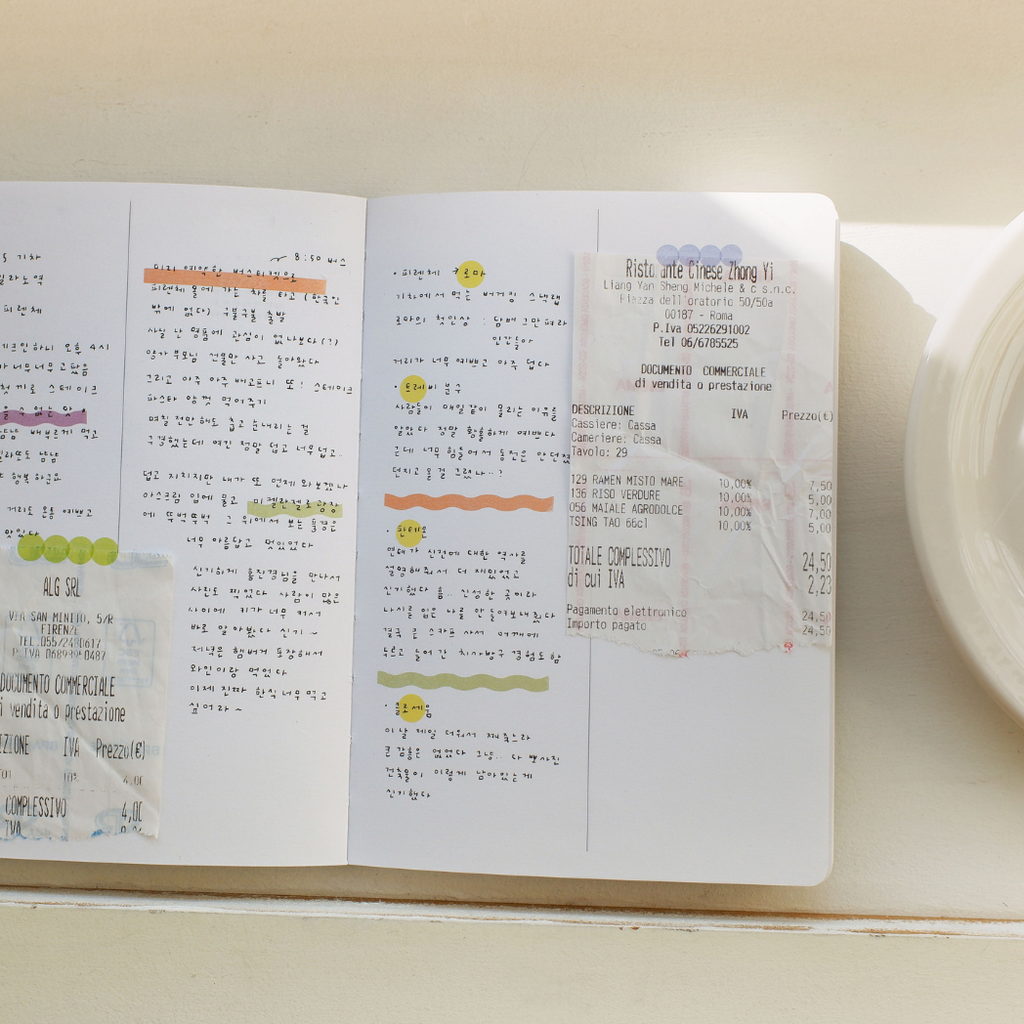 5 기차
밀라노역
피렌체
체크인하니 오후 4시
너무너무 고팠음
스테이크
을 수 없는 맛
냠냠 배부르게 먹고
냠냠
행복하구요
거리도 온통 예쁘고
맛있다
ALG SRL
VIA SAN MINITO, 5/R
FIRENZE
TEL.055/2480617
P.IVA
DOCUMENTO COMMERCIALE
di vendita o prestazione
IZIONE IVA Prezzo(€)
10% 4,00
COMPLESSIVO 4,00
IVA
8:50 버스
미리 예약한 버스티켓으로
피렌체 몰에 가는 차를 타고 (한국인
밖에 없다) 구불구불 출발
사실 난 명품에 관심이 없나보다(?)
양가부모님 선물만 사고 돌아왔다
그리고 아주 아주 배고프니 또! 스테이크
파스타 양껏 먹어주기
며칠 전만해도 춥고 눈내리는 걸
구경했는데 여긴 정말 덥고 너무 덥고..
덥고 지치지만 내가 또 언제 와보겠나
아스크림 입에 물고 미켈란젤로 광장
에 뚜벅뚜벅 그 위에서 보는 풍경은
너무 아름답고 멋있었다
신기하게 울진경님을 만나서
사진도 찍었다 사람이 많은
사이에 키가 너무 커서
바로 알아봤다 신기 ~
저녁은 햄버거 포장해서
와인이랑 먹었다
이제 진짜 한식 너무 먹고
싶어라 ~
· 피렌체 로마
기차에서 먹는 버거킹 스낵랩
로마의 첫인상 : 담배 그만펴라
인간들아
거리가 너무 예쁘고 아주 덥다
· 트레비 분수
사람들이 매일같이 몰리는 이유를
알았다 정말 황홀하게 예쁘다
근데 너무 힘들어서 동전은 안던졌
던지고 올걸 그랬나..?
· 판테온
열대가 신전에 대한 역사를
설명해줘서 더 재밌었고
신기했다 흠.. 신성한 곳이라
나시를 입은 나를 안 들여보내줬다
결국 큰 스카프 사서 어깨에
두르고 들어간 치사빵구 경험도 함
· 콜로세움
이날 제일 더워서
큰 감흥은 없었다 그냥.. 다 뿌사진
건축물이 이렇게 남아있는게
신기했다
Ristorante Cinese Zhong Yi
Liang Yan Sheng Michele & c s.n.c.
Piazza dell'oratorio 50/50a
00187 - Roma
P.Iva 05226291002
Tel 06/6785525
DOCUMENTO COMMERCIALE
di vendita o prestazione
DESCRIZIONE IVA Prezzo(€)
Cassiere: Cassa
Cameriere: Cassa
Tavolo: 29
129 RAMEN MISTO MARE 10,00% 7,50
136 RISO VERDURE 10,00% 5,00
056 MAIALE AGRODOLCE 10,00% 7,00
TSING TAO 66cl 10,00% 5,00
TOTALE COMPLESSIVO 24,50
di cui IVA 2,23
Pagamento elettronico 24,50
Importo pagato 24,50